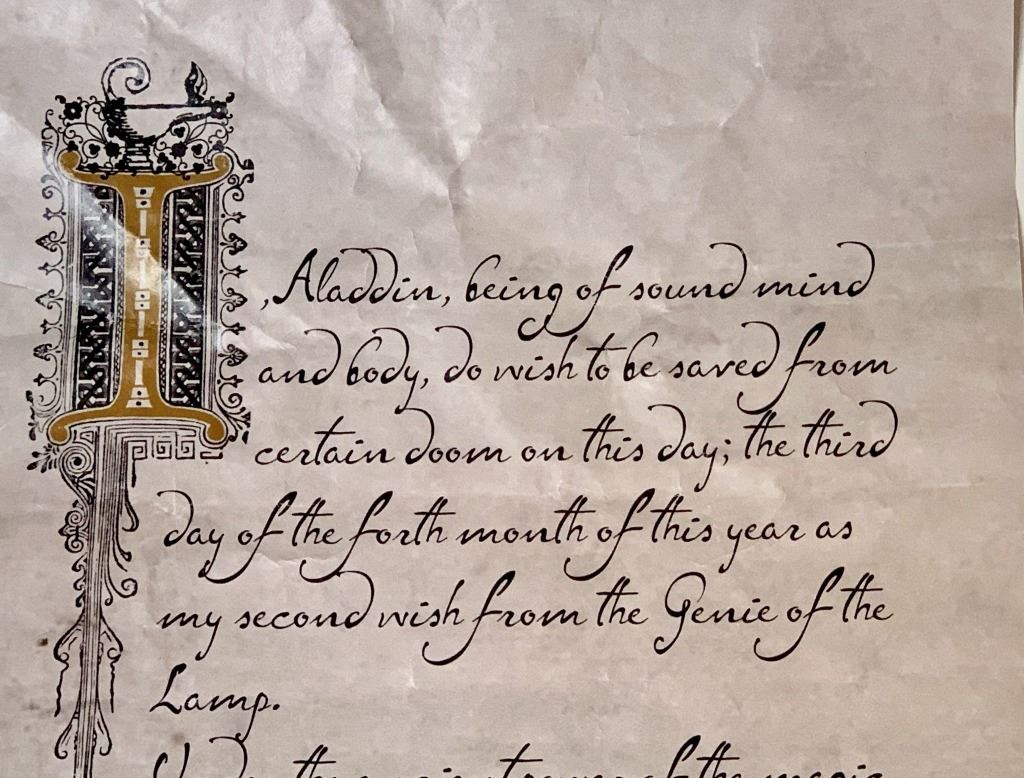 I, Aladdin, being of sound mind
and body, do wish to be saved from
certain doom on this day; the third
day of the forth month of this year as
my second wish from the Genie of the
Lamp.
of the magic